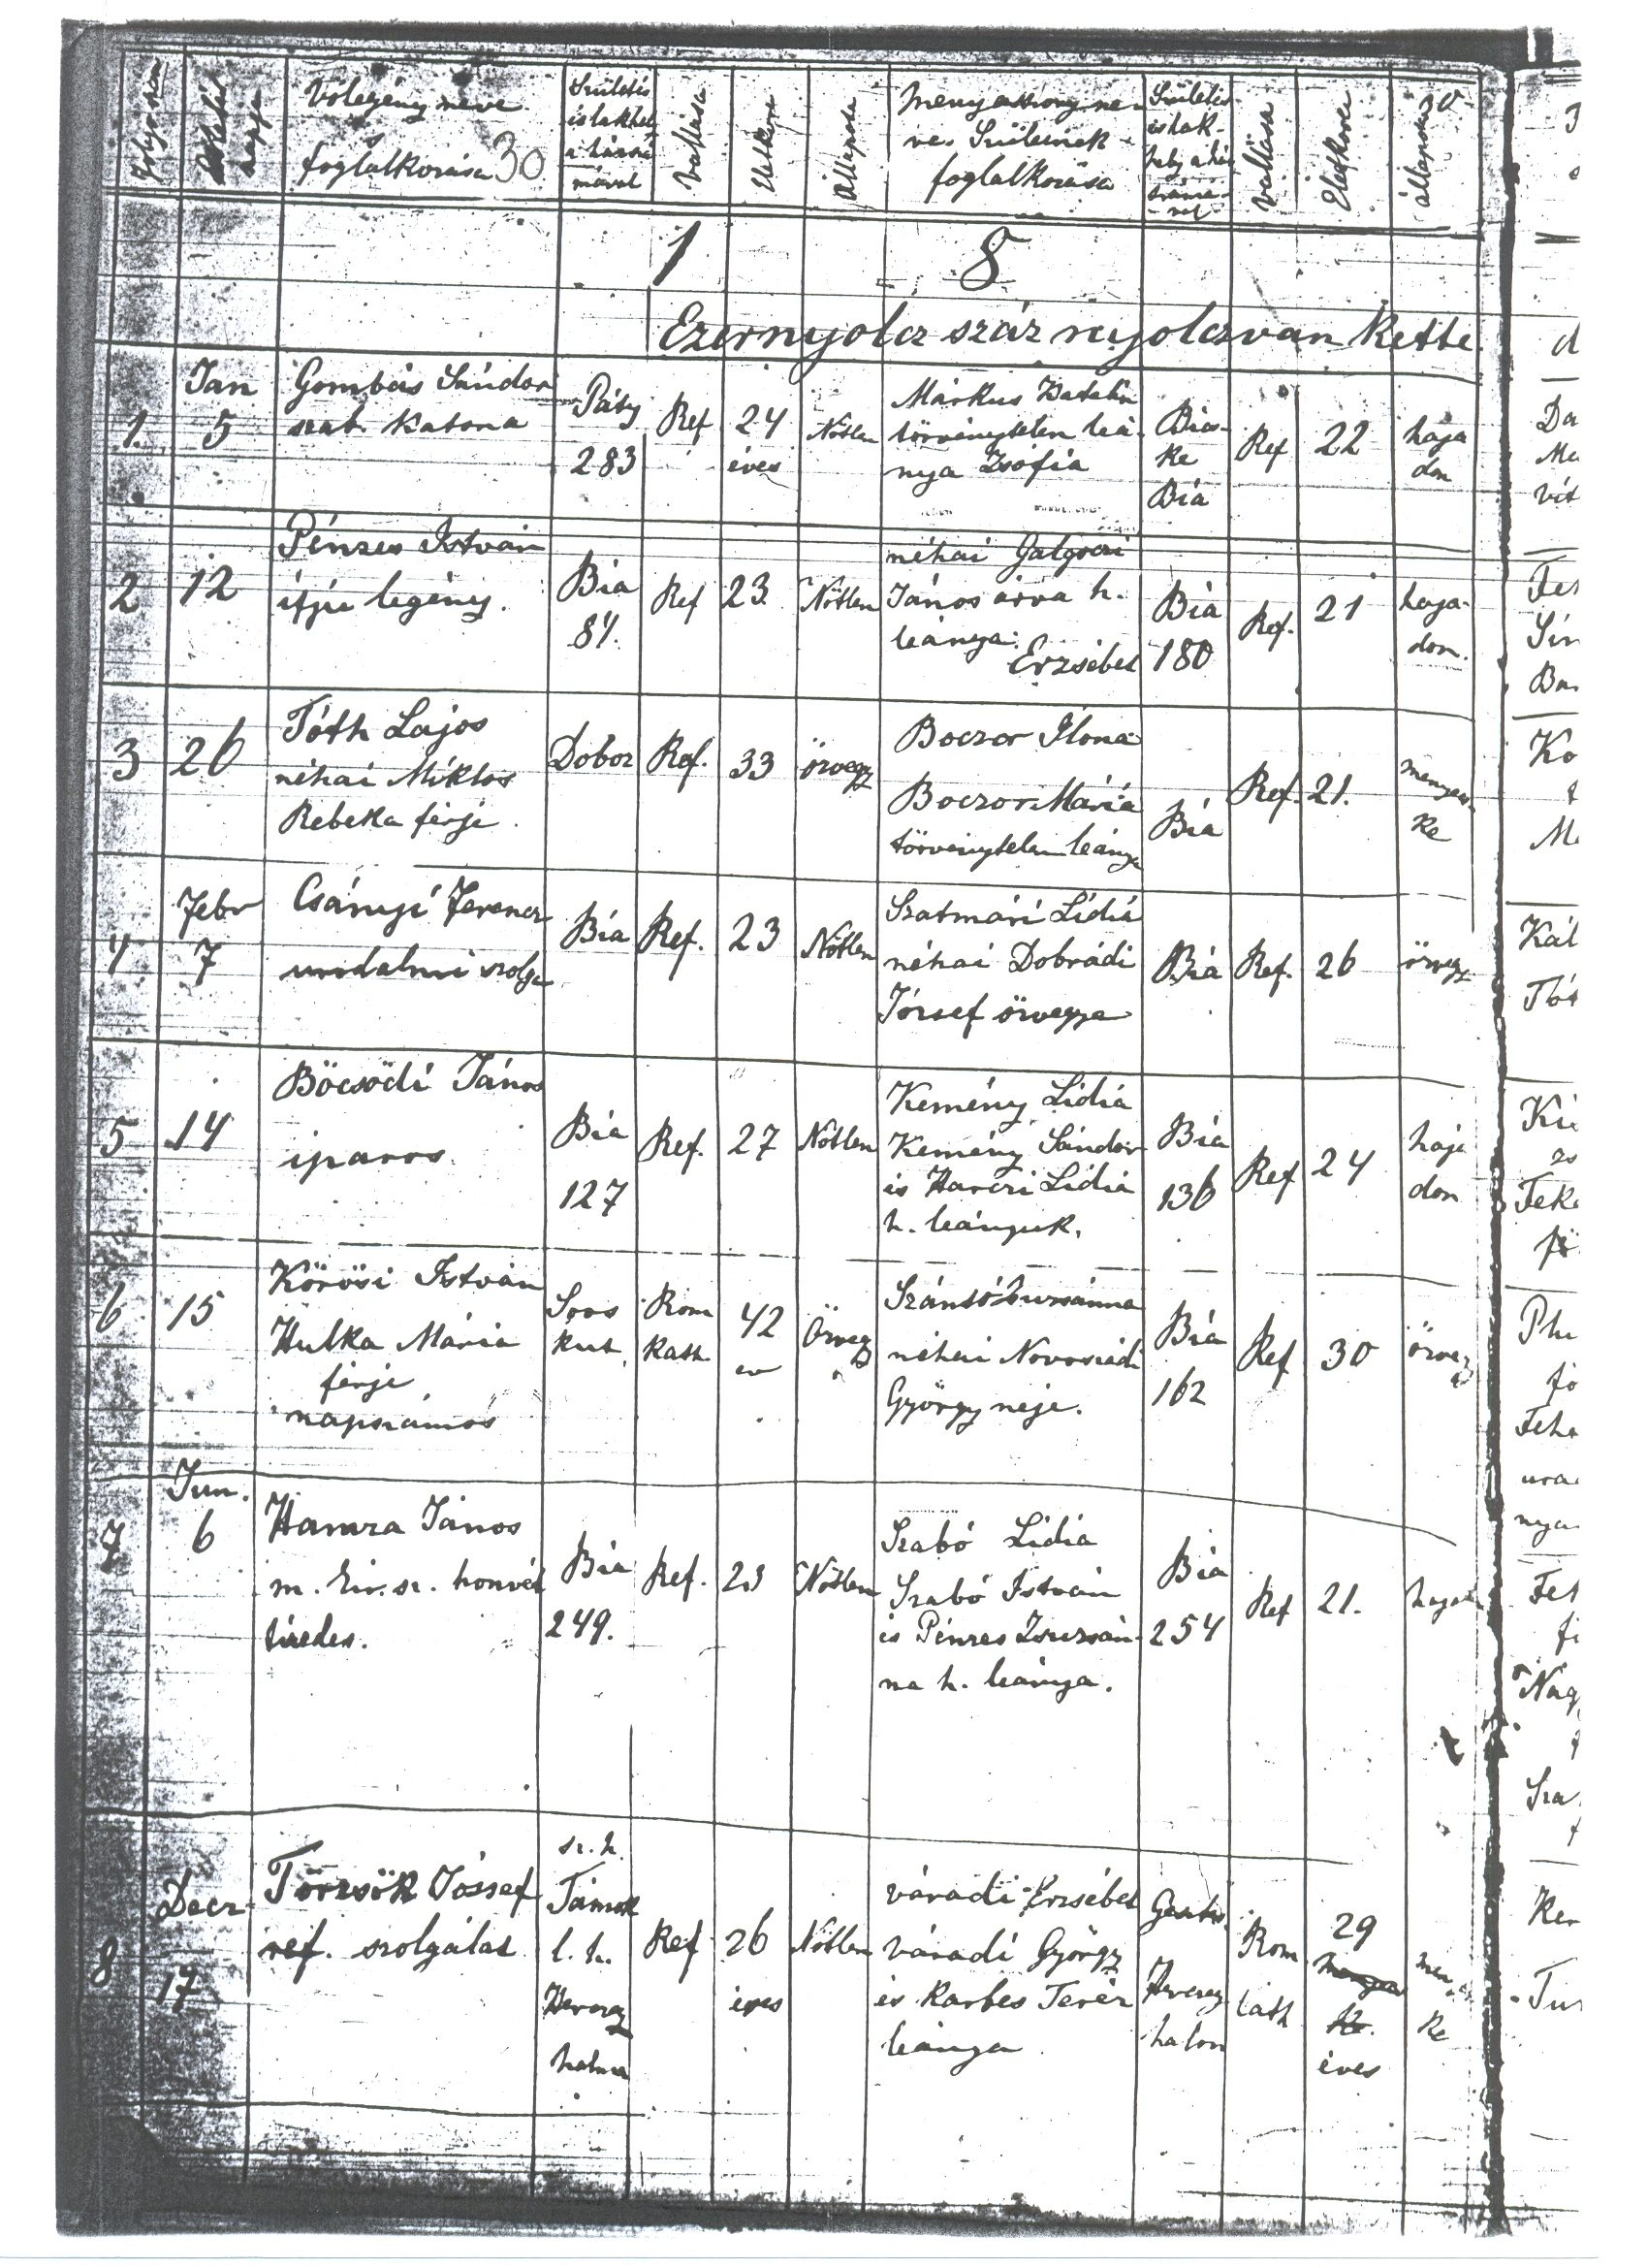 Vőlegény neve
foglalkozása 30
Születés
és lakhely
a házszá
mával
Vallása
Életkora
Állapota
Menyasszony ne-
ve s Szüleinek
foglalkozása
Születés
és lak-
hely a ház
számá-
val
Vallása
Életkora
állapota
1 8
Ezernyolcz száz nyolczvan Kette.
1.
Jan
5
Gombás Sándor
szab. Katona
Páty
283
Ref
24
éves
Nőtlen
Márkus Katalin
törvénytelen leá-
nya Zsófia
Bics-
ke
Bia
Ref
22
haja
don
2
12
Pénzes István
ifjú legény.
Bia
Ref
23
Nőtlen
néhai Galgóczi
János árva h.
leánya:
Erzsébet
Bia
180
Ref.
21
haja-
don.
3
26
Tóth Lajos
néhai Miklos
Rebeka férje.
Doboz
Ref.
33
özvegy
Boczor Ilona
Boczor Mária
törvénytelen leánya
Bia
Ref.
21.
menyecs-
ke
4
Febr
7
Csányi Ferencz
uradalmi szolga
Bia
Ref.
23
Nőtlen
Szatmári Lídia
néhai Dobrádi
József özvegye
Bia
Ref.
26
özvegy
5
14
Böcsödi János
iparos.
Bia
127
Ref.
27
Nőtlen
Kemény Lídia
Kemény Sándor
és Lídia
h. leányuk.
Bia
136
Ref
24
haja
don
6
15
Körösi István
Hulka Mária
férje
napszámos
Soos
kut
Rom
kath.
42
Özvegy
Szántó Zsuzsánna
néhai
György neje.
Bia
162
Ref
30
özvegy
7
Jun.
6
Hamza János
m. kir. sz. honvéd
tizedes.
Bia
249.
Ref.
23
Nőtlen
Szabó Lídia
Szabó István
és Pénzes Zsuzsán-
na h. leánya.
Bia
254
Ref
21.
8
Decz
17
Törzsök József
ref. szolgálat
sz. h.
l. h.
Herczeg
halma
Ref
26
éves
Nőtlen
Váradi Erzsébet
Váradi György
és Teréz
leánya
Herczeg
halom
Rom
kath
29
éves
ke